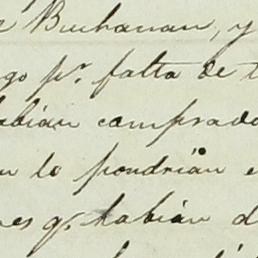 Buchanan, y
go pr. falta de
habian comprado
lo pondrian
es qe. habian d